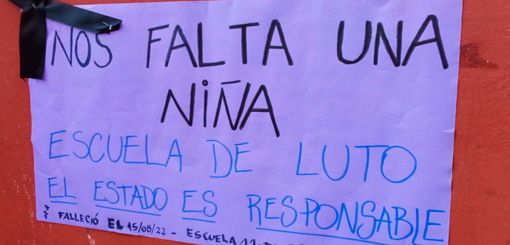 NOS FALTA UNA
NiÑA
ESCUELA DE LUTO
EL ESTADO ES RESPONSABLE
FALLECIÓ EL 15/08/22 - ESCUELA